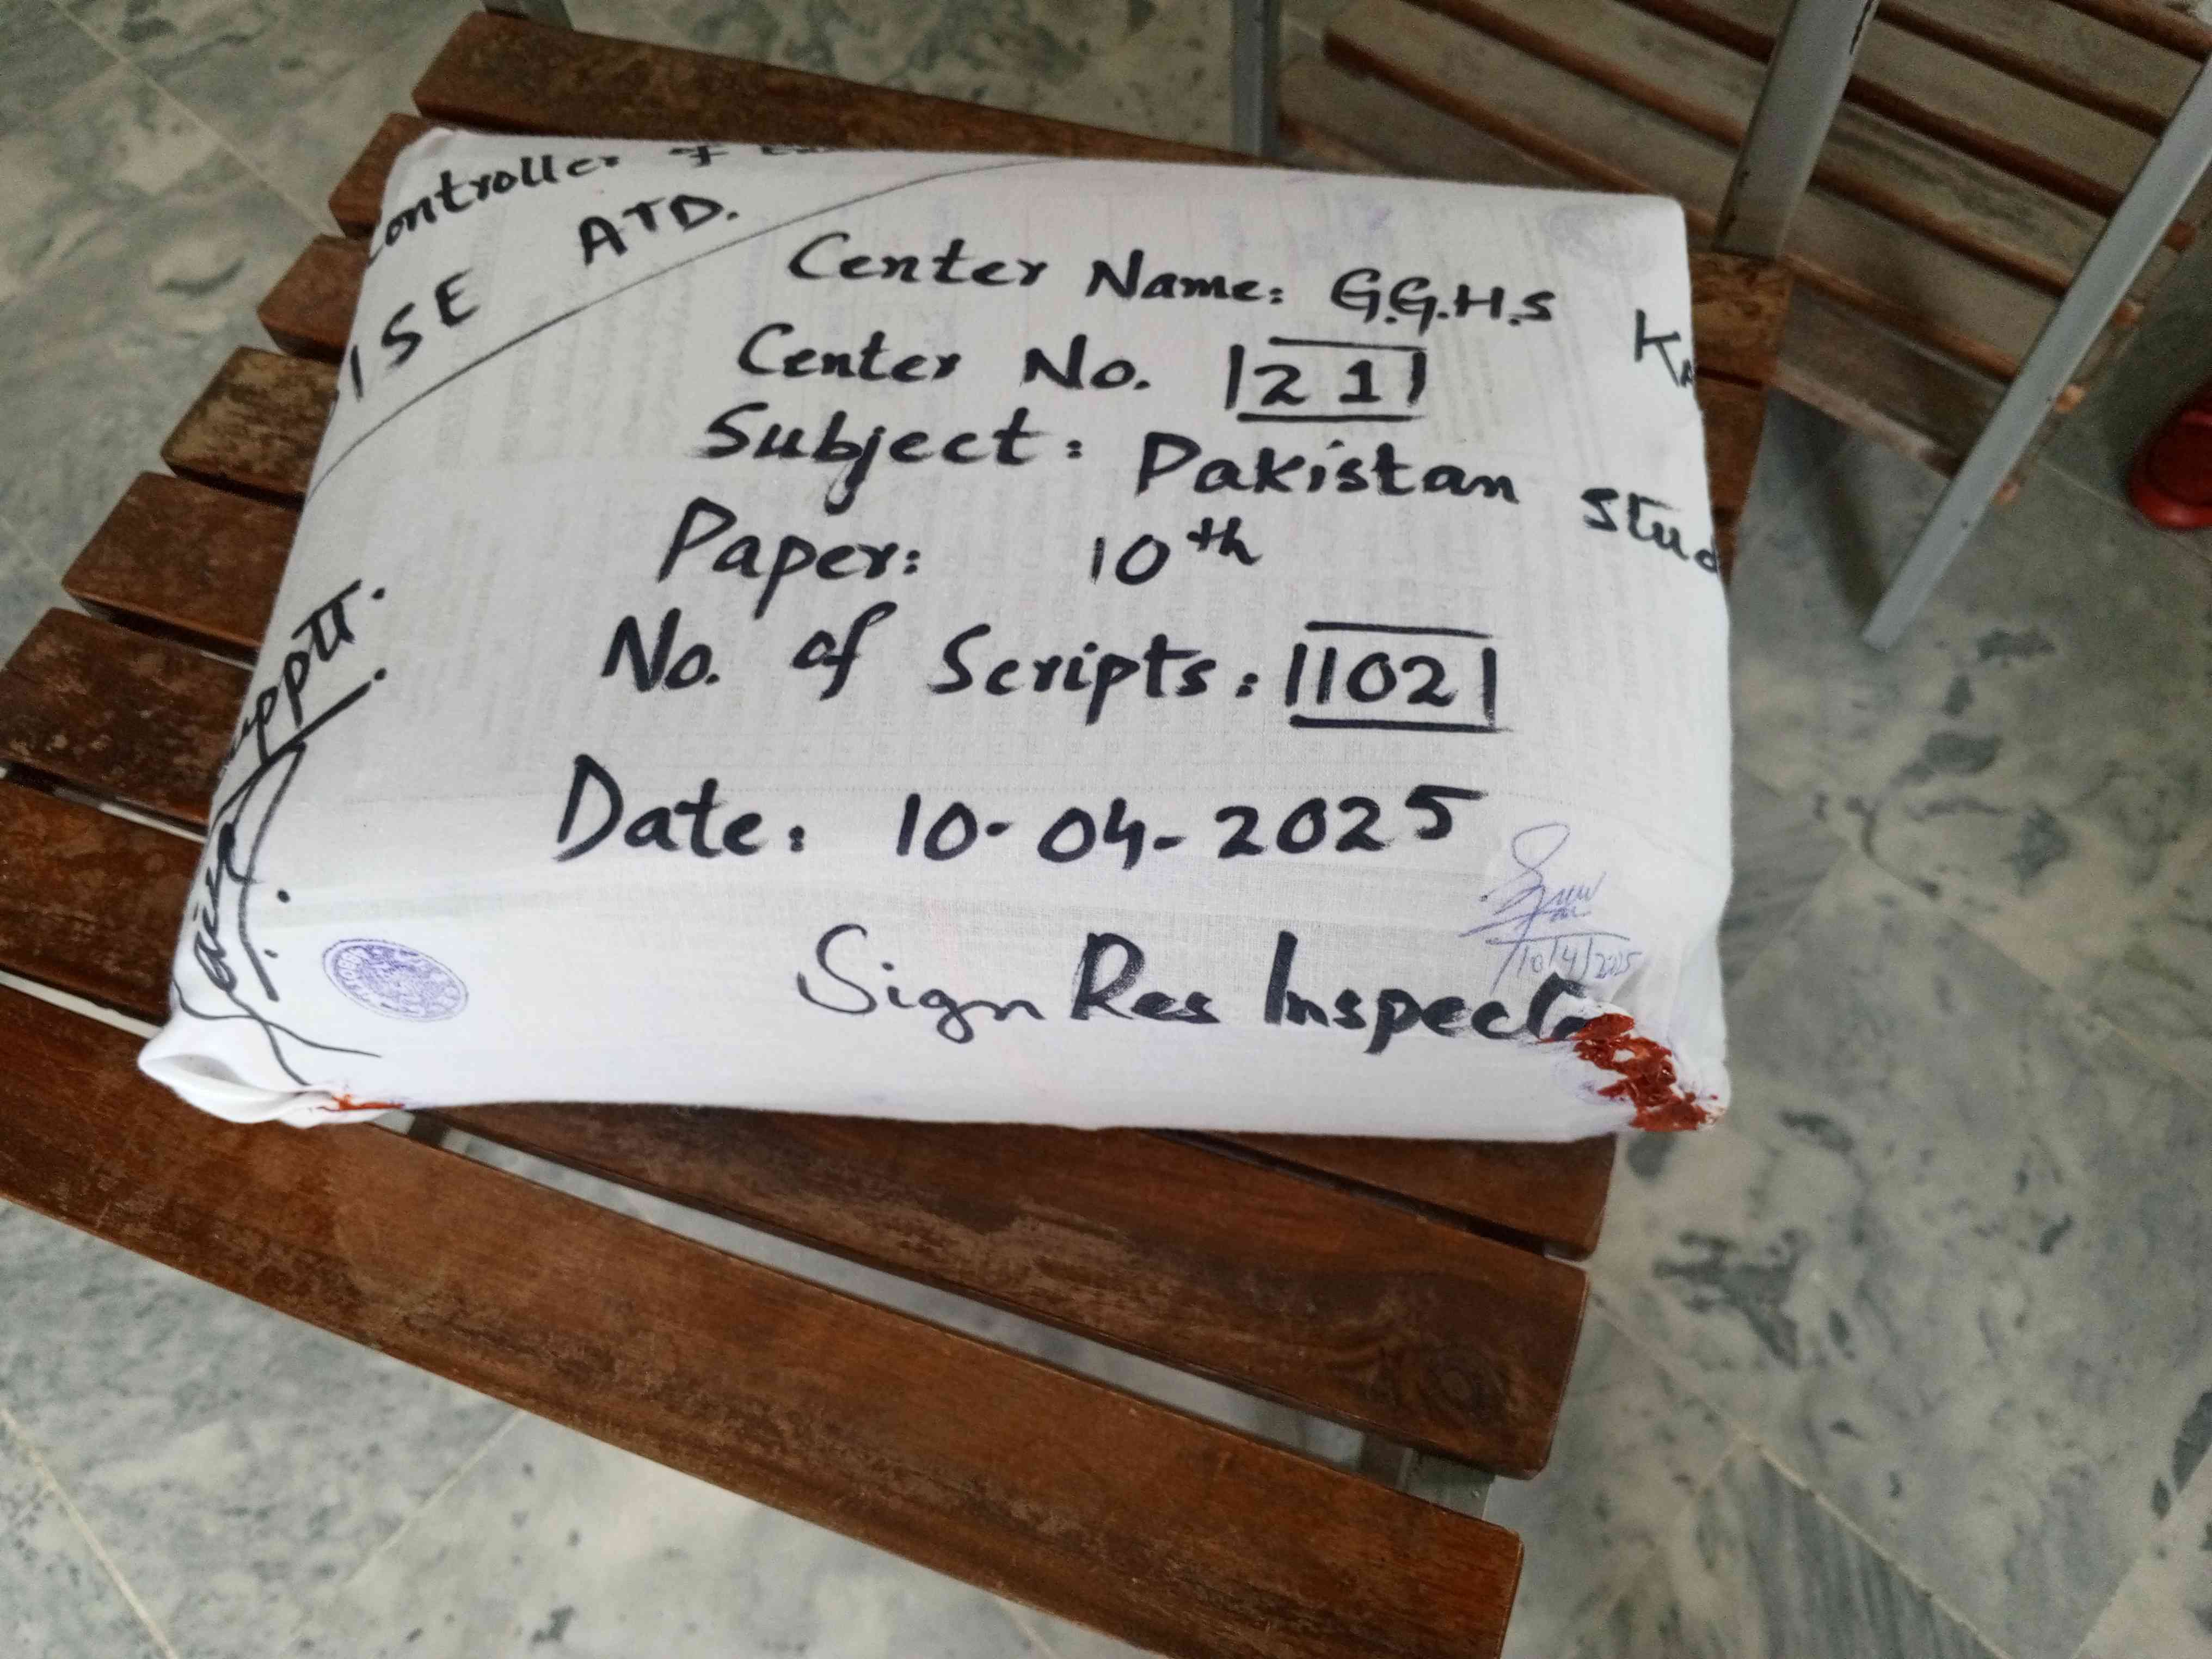 ontroller of
ISE ATD.
Center Name: G.G.H.S
Center No. 21
Subject: Pakistan Stud
Paper: 10th
No. of Scripts: 102
Date: 10-04-2025
10/4/2025
Sign Res Inspecto
upptt.